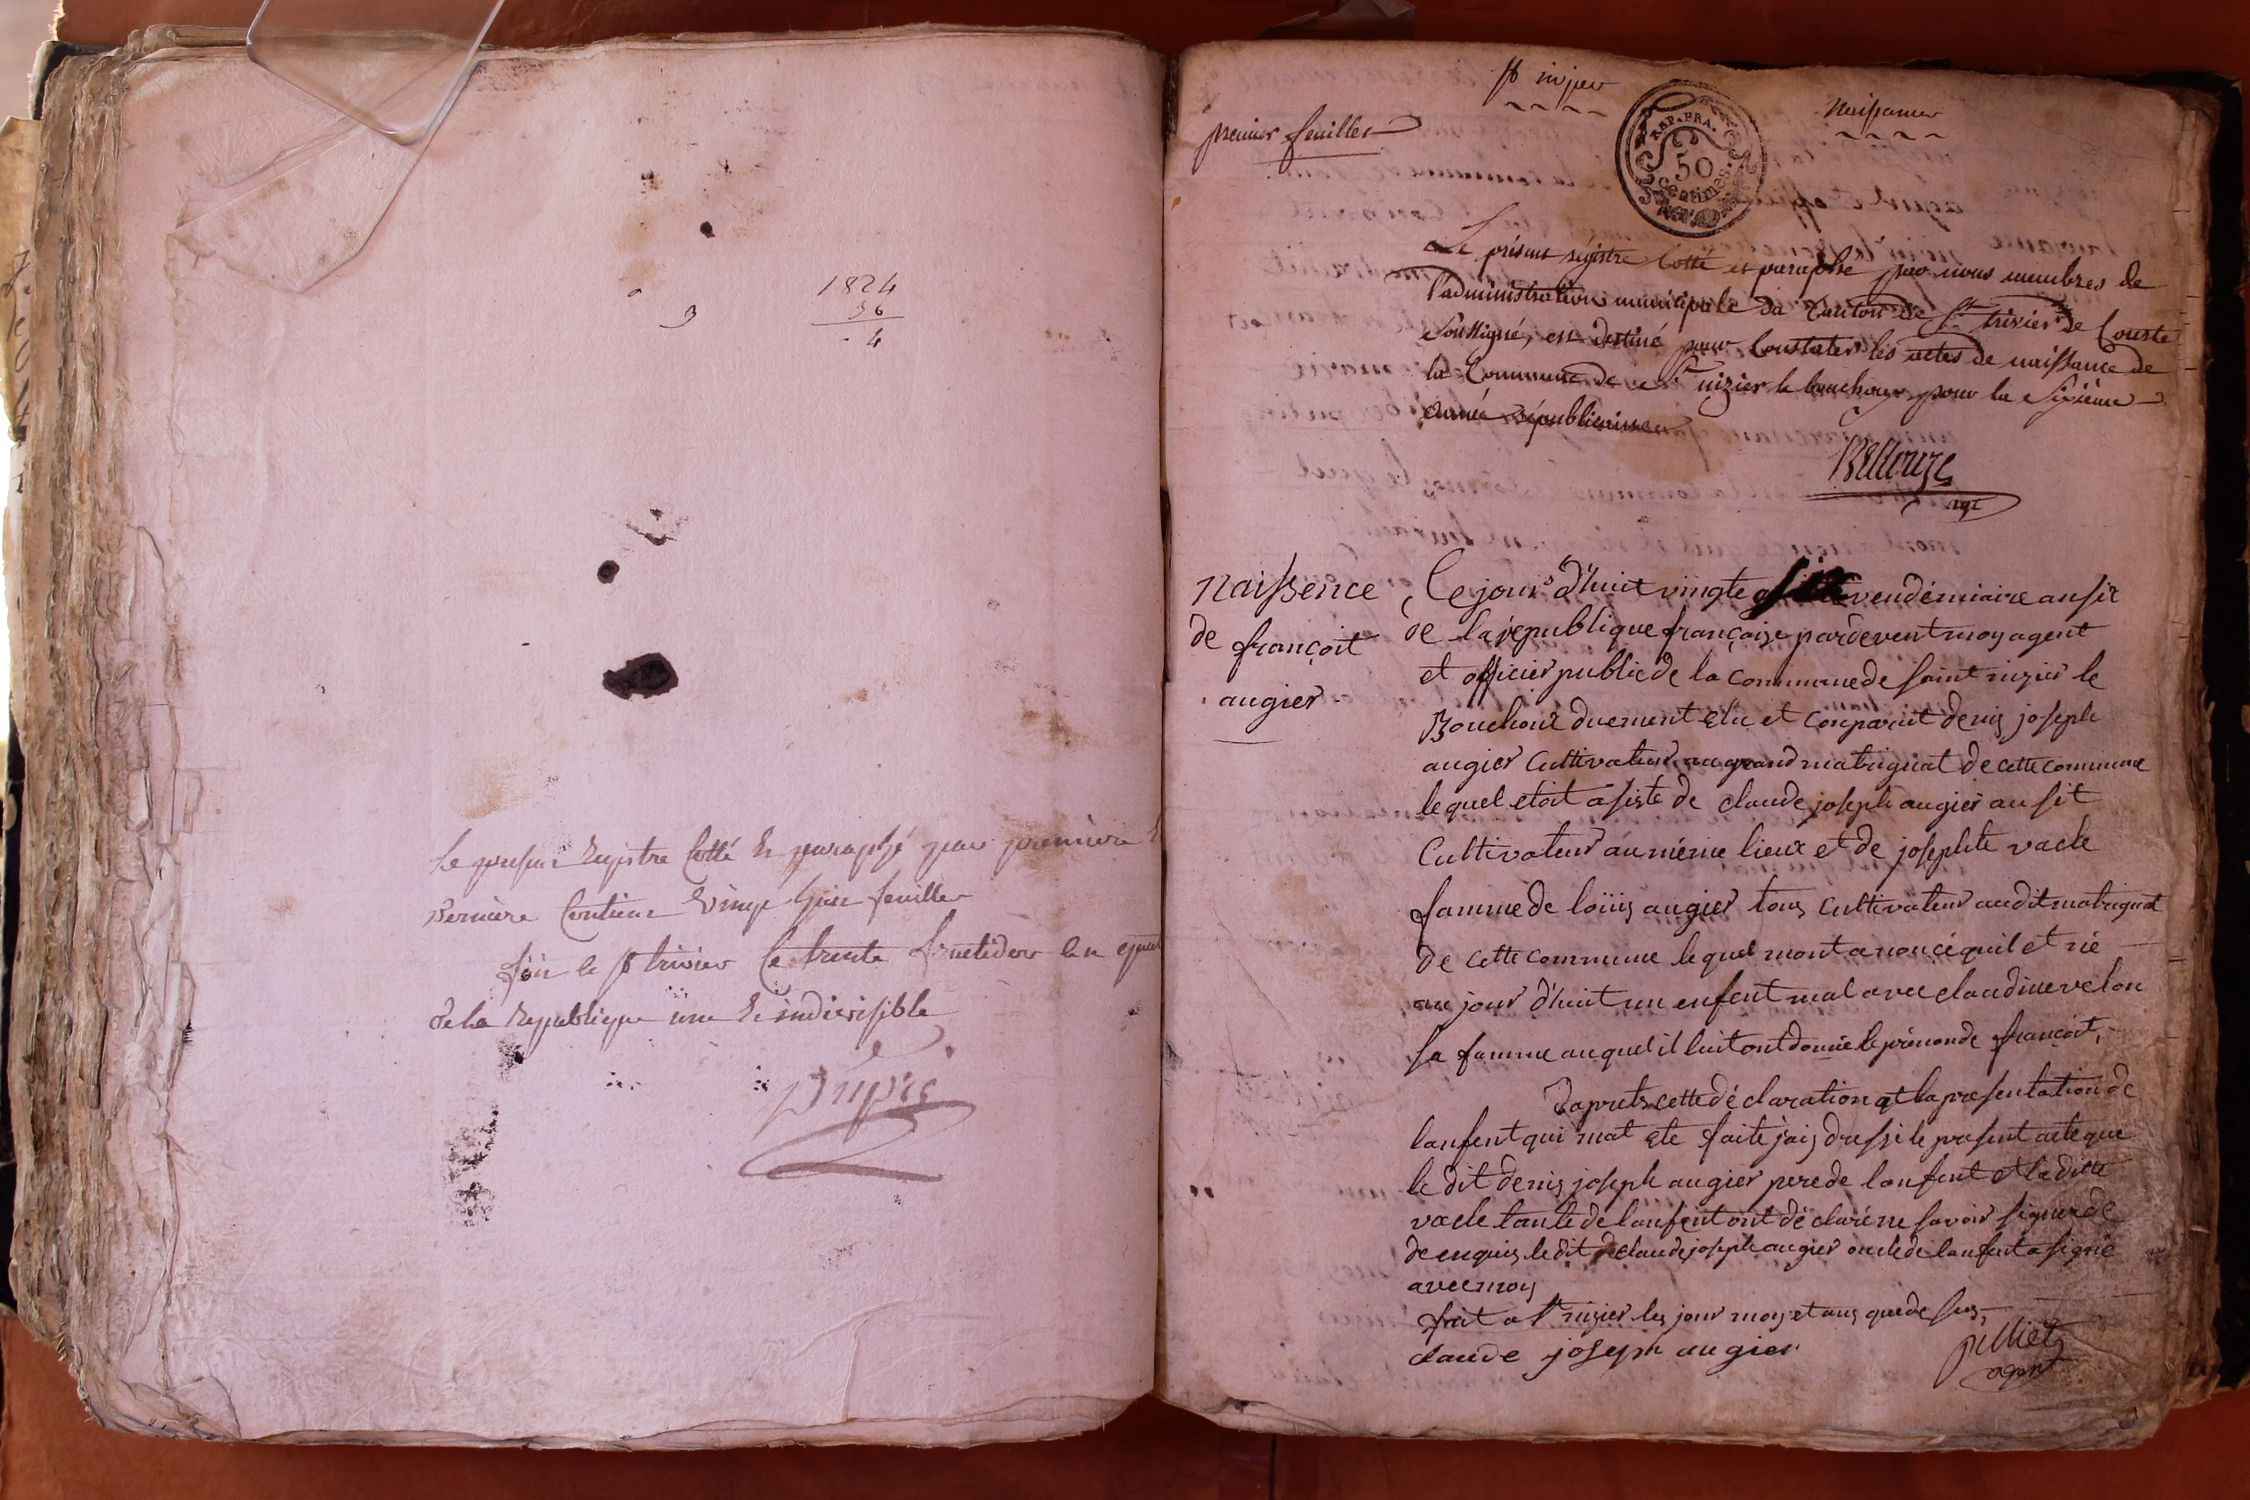 1824
36
4
Le present Registre Cotté et paraphé par premiere et
Derniere Contient vingt huit feuilles
fait le St trivier le trente fructidor l'an
de la Republique une et indivisible
Dupré
St nizier
Naissances
premier feuillet
REP. FRA.
50
centimes.
Le présent régistre Cotté et paraphé par nous membres de
l'administration municipale du Canton de St trivier de Courte
Soussigné, est destiné pour Constater les actes de naissance de
la Commune de St nizier le bouchoux pour la Sixième
année républicaine
Bellouze
agt
Naissence
de françoit
augier
Ce jour d'huit vingte six vendémiaire an six
de la république françoise pardevent moy agent
et officier public de la commune de saint nizier le
Bouchoux duement elu et comparut denis joseph
augier Cultivateur au grand matrignat de cette commune
lequel etoit asisté de claude joseph augier ausit
Cultivateur au mème lieux et de josephte vacle
famme de loüis augier tous cultivateur audit matrignat
de cette commune lequel mont anoncé quil et né
au jour d'huit un enfent mal avec claudine velon
sa famme auquel il luit ont donné le prénon de françoit,
daprets cette déclaration et la présentation de
lanfent qui mat ete faite jais dressé le present acte que
le dit denis joseph augier pere de lanfent et la ditte
vacle tante de lanfent ont déclaré ne savoir signer de
de enquis le dit claude joseph augier oncle de lanfent a signé
avec moy
fait a St nizier les jour moy et ans que de sus,
claude joseph augier
pilliet
agent